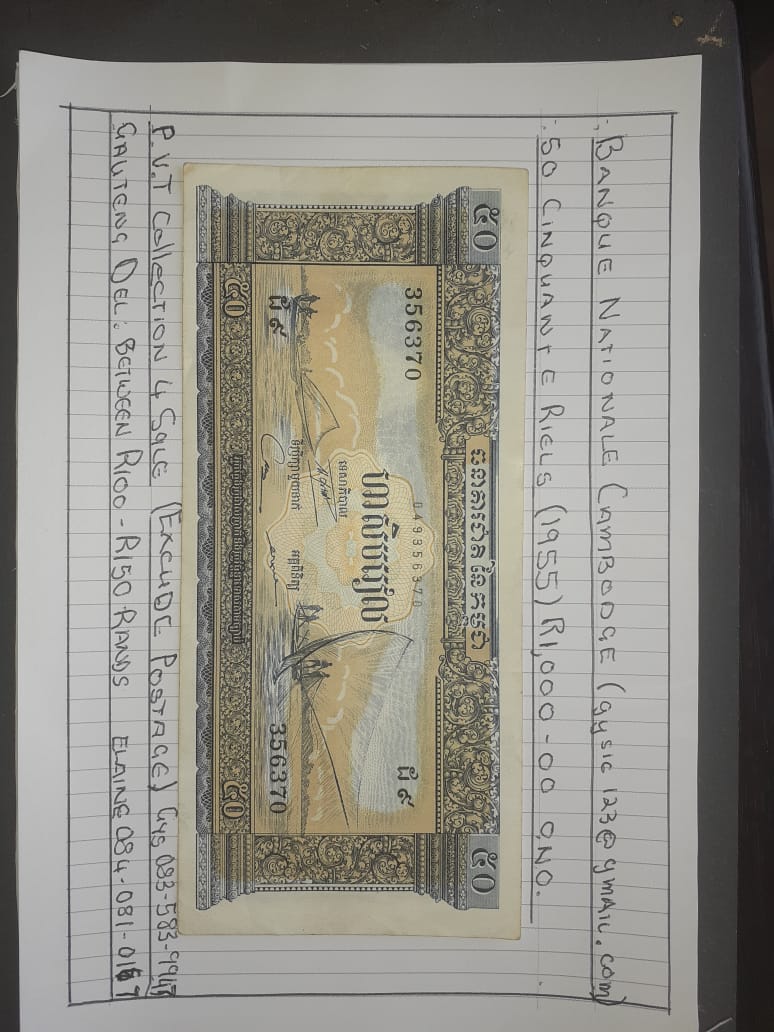 : BANQUE NATIONALE CAMBODGE (gysie 123@gmail.com)
: 50 CINQUANTE RIELS (1955) R1,000-00 ONO.
៥០ ធនាគារជាតិនៃកម្ពុជា ៥០
356370
049356370
ហាសិបរៀល
356370
៥០ ៥០
P.V.T Collection 4 SALE (EXCLUDE POSTAGE) GYS 083-583-9947
GAUTENG DEL: BETWEEN R100-R150-RANDS ELAINE 084-081-0167